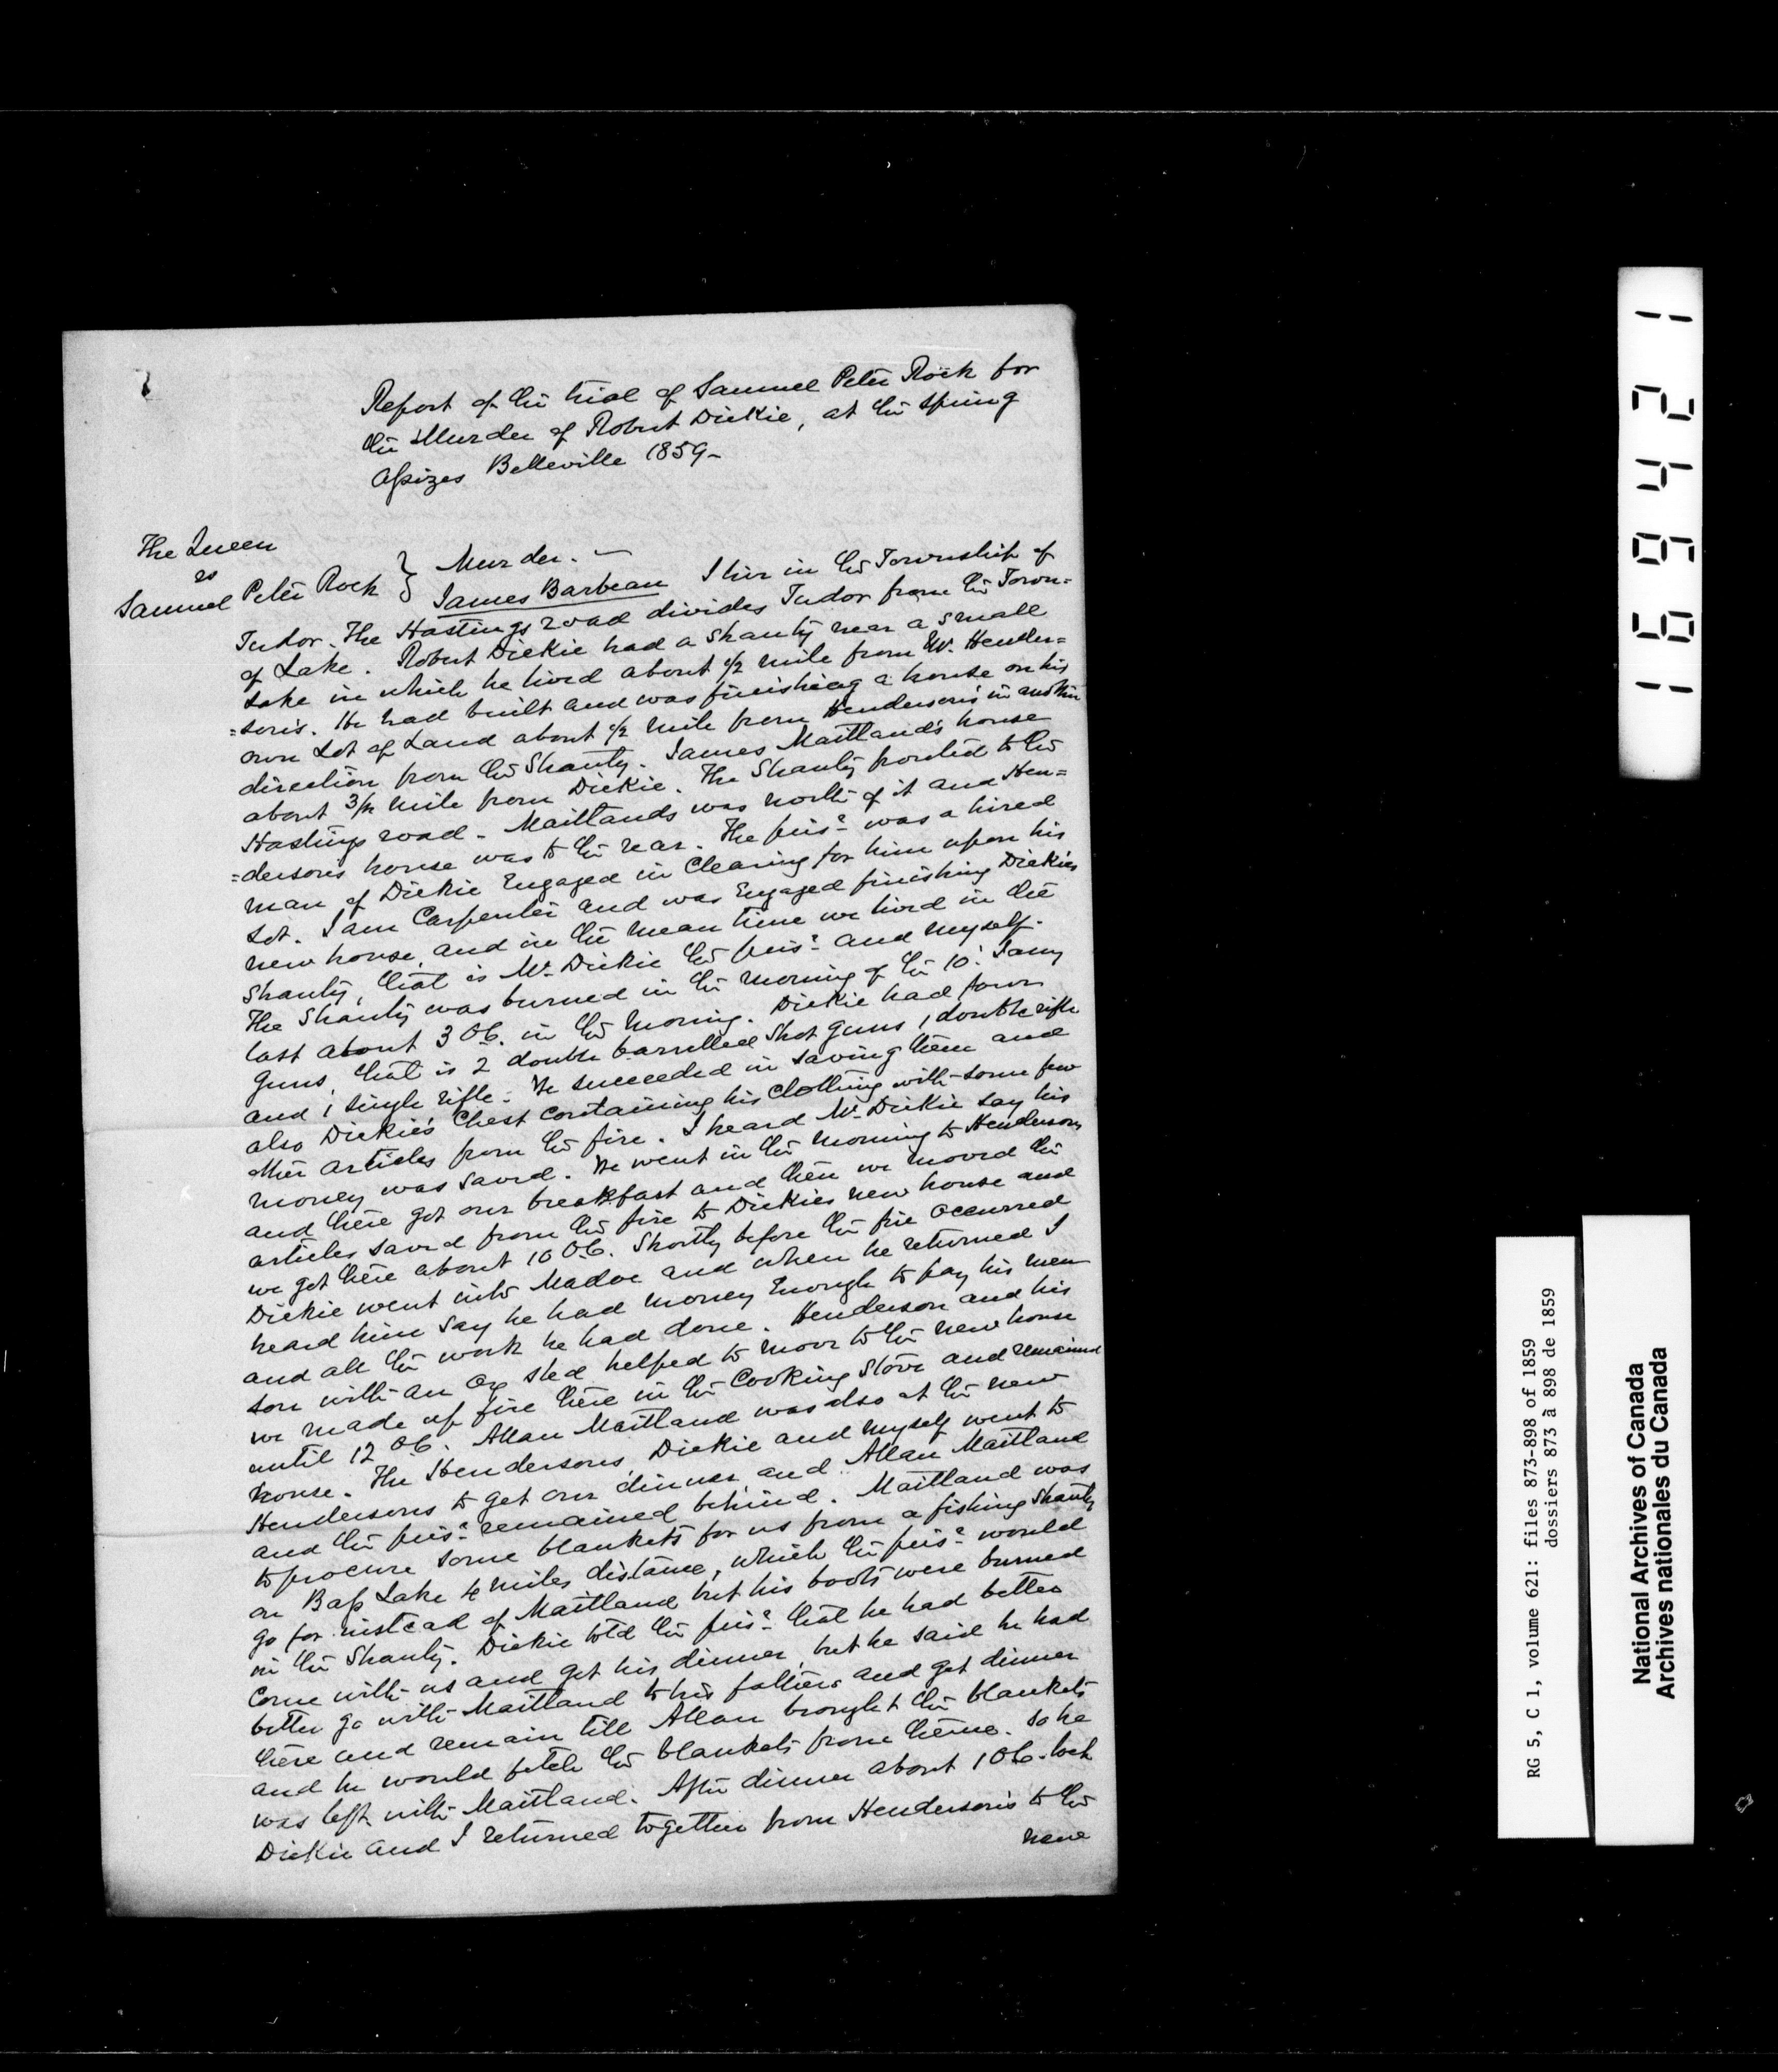 Report of the trial of Samuel Peter Rock for
the Murder of Robert Dickie, at the Spring
Assizes Belleville 1859-
The Queen
vs
Samuel Peter Rock } Murder. -
James Barbeau I live in the Township of
Tudor. The Hastings road divides Tudor from the Town=
of Lake. Robert Dickie had a Shanty near a small
Lake in which he lived about 1/2 mile from W. Hender=
=son's. He had built and was finishing a house on his
own Lot of Land about 1/2 mile from Henderson's in another
direction from the Shanty. James Maitland's house
about 3/4 mile from Dickie. The Shanty fronted to the
Hastings road - Maitlands was north of it and Hen=
=dersons house was to the rear. The pris.r was a hired
man of Dickie Engaged in Clearing for him upon his
Lot. I am Carpenter and was Engaged finishing Dickies
new house, and in the mean time we lived in the
Shanty, that is Mr Dickie the pris.r and myself.
The Shanty was burned in the morning of the 10. Jany
last about 3 OC. in the morning. Dickie had four
Guns, that is 2 double barrelled Shot Guns, 1 double rifle
and 1 single rifle. We succeeded in saving them and
also Dickie's Chest containing his Clothing with some few
other articles from the fire. I heard Mr Dickie say his
money was saved. We went in the morning to Hendersons
and there got our breakfast and then we moved the
articles saved from the fire to Dickies new house and
we got there about 10 OC. Shortly before the fire occurred
Dickie went into Madoc and when he returned I
heard him say he had money Enough to pay his men
and all the work he had done. Henderson and his
son with an Ox sled helped to move to the new house
we made up fire there in the Cooking Stove and remained
until 12 OC. Allan Maitland was also at the new
house. The Hendersons, Dickie and myself went to
Hendersons to get our dinner, and Allan Maitland
and the pris.r remained behind. Maitland was
to procure some blankets for us from a fishing Shanty
on Bass Lake 4 miles distance, which the pris.r would
go for instead of Maitland but his boots were burned
in the Shanty. Dickie told the pris.r that he had better
come with us and get his dinner, but he said he had
better go with Maitland to his fathers and get dinner
there and remain till Allan brought the blankets
and he would fetch the blankets from thence. So he
was left with Maitland. After dinner about 1 OC-lock
Dickie and I returned together from Henderson's to the
new
169421
RG 5, C 1, volume 621: files 873-898 of 1859
dossiers 873 à 898 de 1859
National Archives of Canada
Archives nationales du Canada